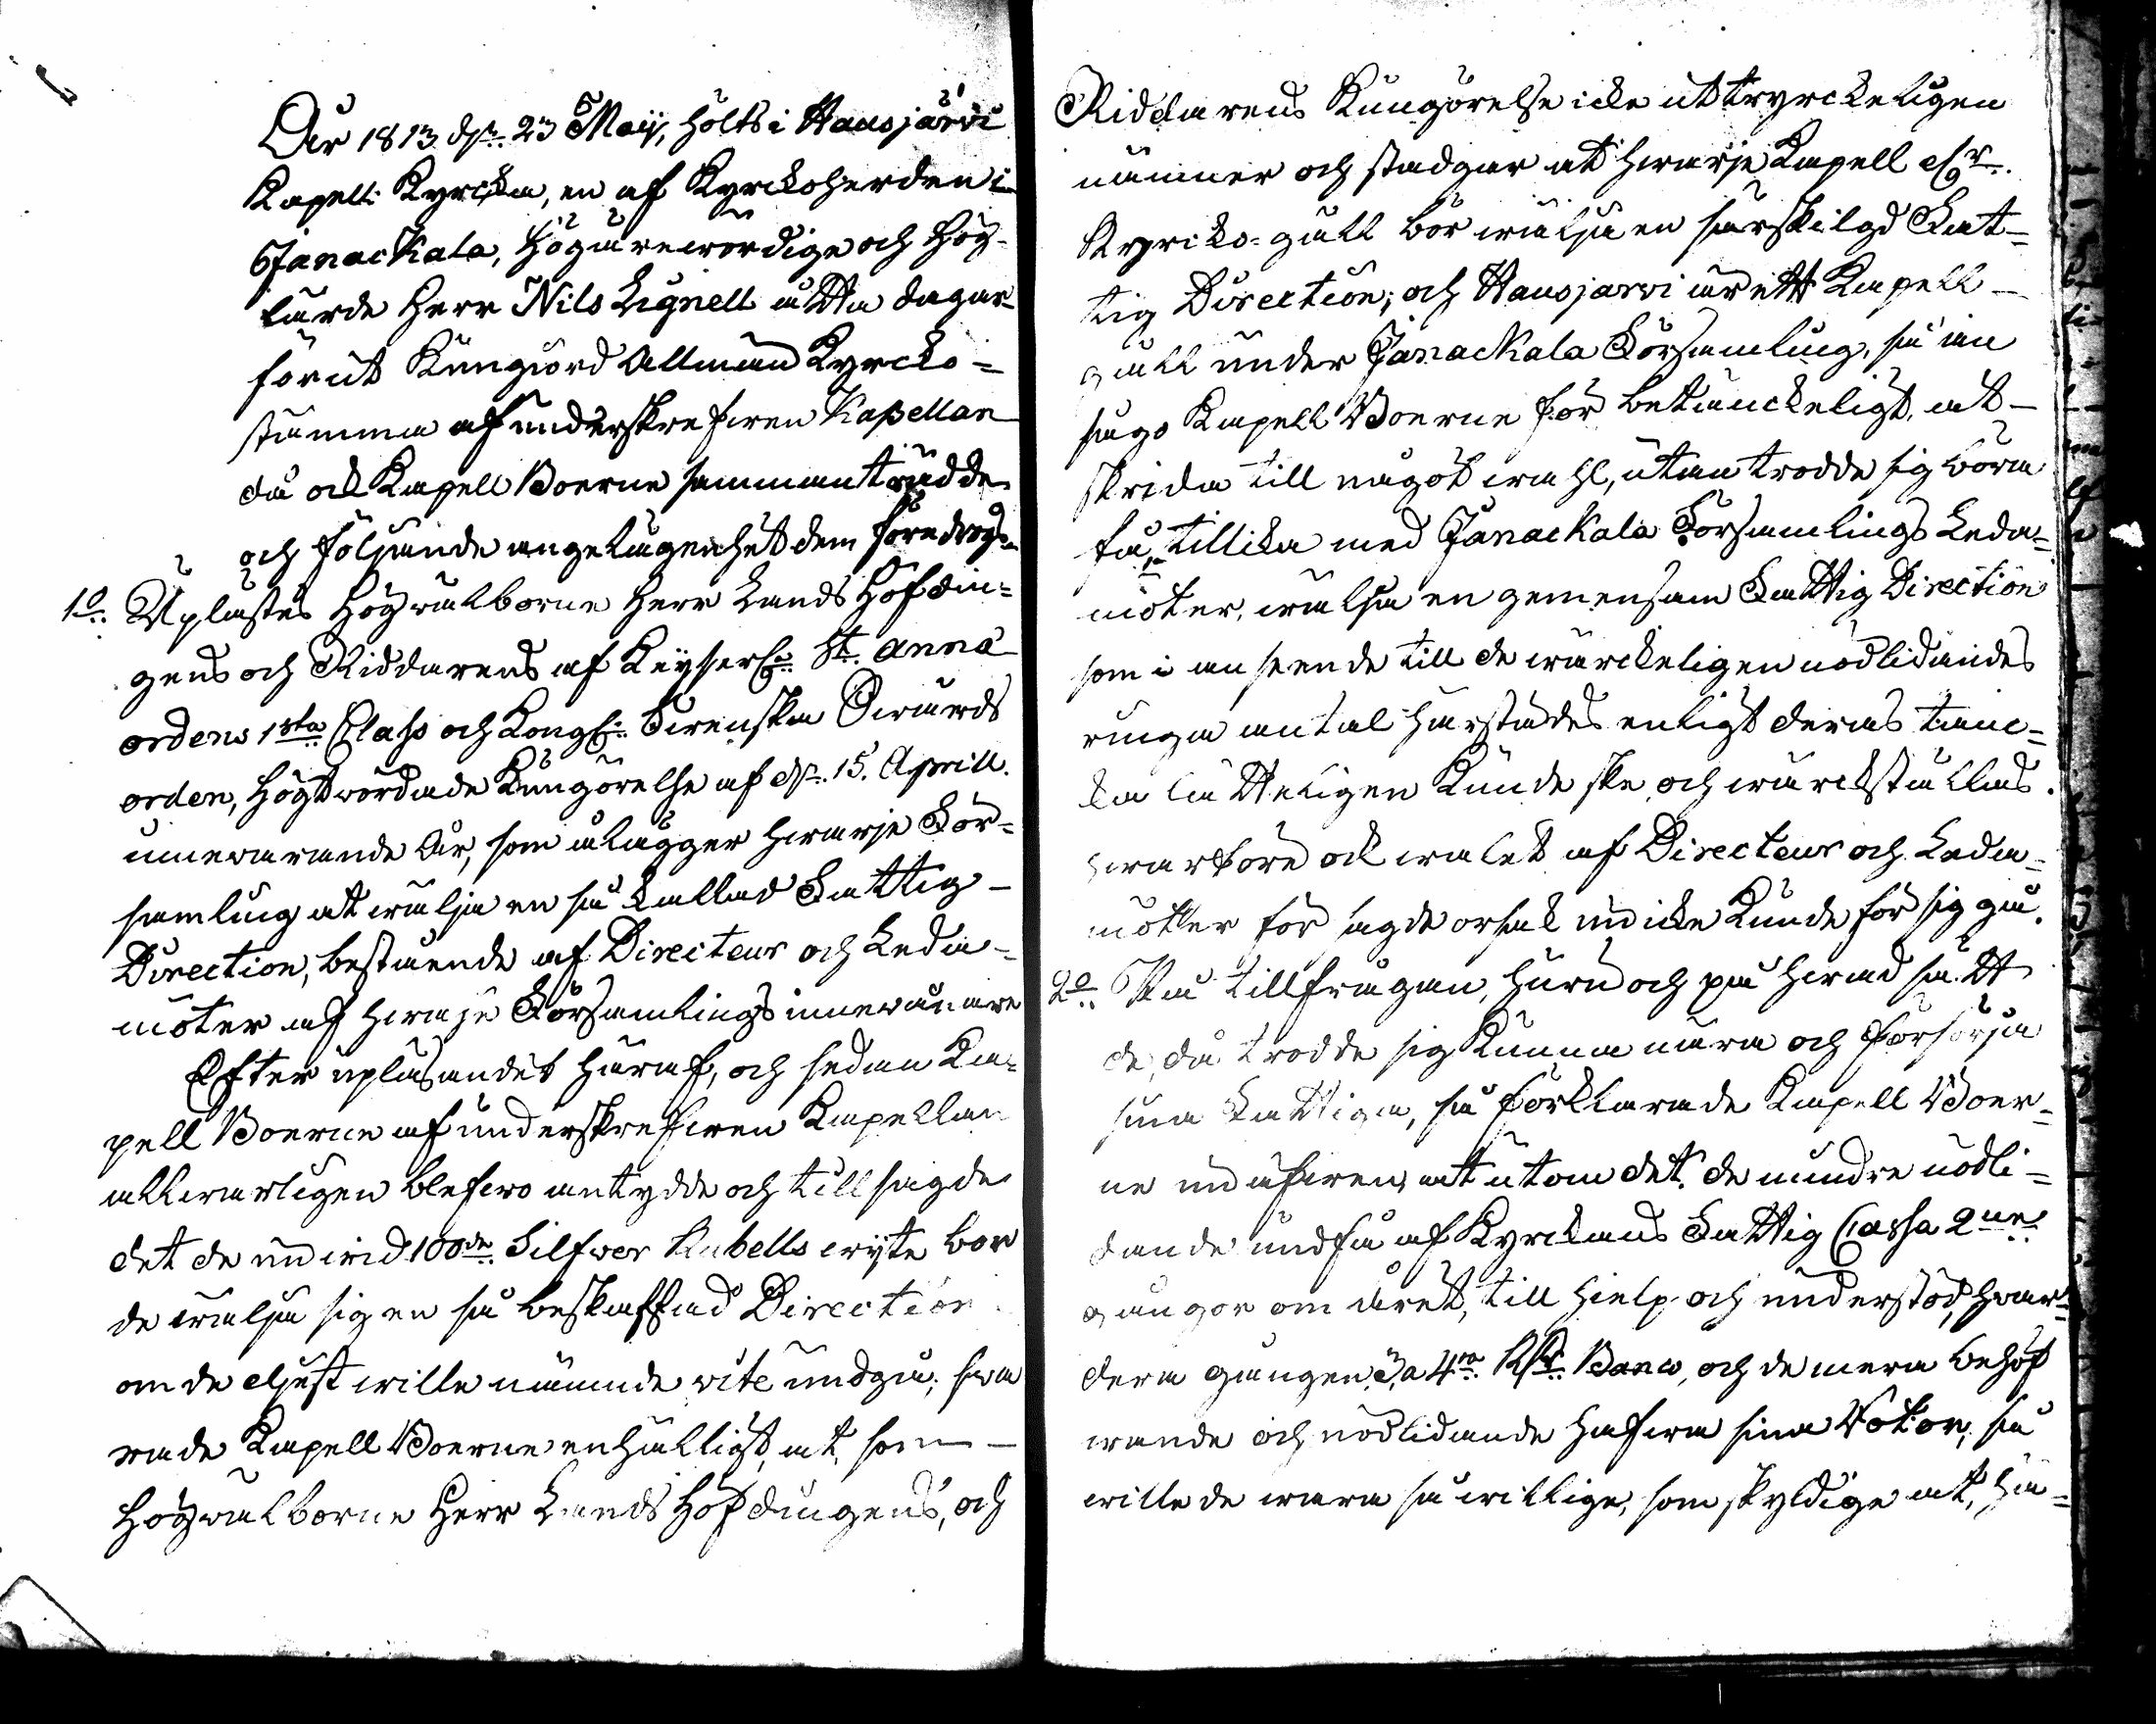 År 1813 d. 23 Maij, hölts i Hausjärvi
Kapell Kyrcka, en af Kyrckoherden i
Janackala, Högärewördige och Hög-
lärde Herr Nils Lignell åtta dagar
förut Kungjord Allmän Kyrcko=
stämma af underskrefwen Kapellan
då ock Kapell Boerne sammanträdde
och följande angelägenhet dem föredrogs.
1o. Uplästes Högwälborne Herr Lands Höfdin=
gens och Riddarens af Keyserl. St. Anna
ordens 1sta Class och Kongl. Swenska Swärds
orden, Högtwördade Kungörelse af d. 15. Aprill.
innewarande År, som ålägger hwarje För=
samling at wälja en så kallad Fattig-
Direction, bestående af Directeur och Leda=
möter af hwarje Församlings innewånare
Efter upläsandet häraf, och sedan Ka=
pell Boerne af underskrefwen Kapellan
allwarligen blefwo antydde och tillsagde
det de wid 100de Silfwer Rubells wyte bor
de wälja sig en så beskaffad Direction
om de eljest wille nämnde wite undgå; swa
rade Kapell Boerne enhälligt, at, som-
Högwälborne Herr Lands Höfdingens, och
Riddarens Kungörelse icke uttryckeligen
nämner och stadgar at hwarje Kapell elr.
Kyrcko-gäll bör wälja en särskild Fat=
tig Direction; och Hausjarvi är ett Kapell-
gäll under Janackala Församling, så an
sågo Kapell Boerne för betänckeligt, at-
skrida till något wahl, utan trodde sig böra
få, tillika med Janackala Församlings Leda=
möter, wälja en gemensam Fattig Direction
som i anseende till de wärckeligen nödlidandes
ringa antal härstädes enligt deras tanc=
ka lätteligen Kunde ske och wärckställas.
hwarföre ock walet af Directeur och Leda=
möter för sagde orsak nu icke Kunde för sig gå.
2o. På tillfrågan, huru och på hwad sätt
de, då trodde sig Kunna nära och försörja
sina Fattiga, så förklarade Kapell Boer=
ne at utom det, de mindre nödli=
dande undfå af Kyrckans Fattig Cassa 2ne
gångor om året, till hielp och understöd, hwar=
dera gången 3 a 4ra R. Banco, och de mera behöf
wande och nödlidande hafwa sina Rotor, så
wille de wara så willige, som skyldige at, hä=